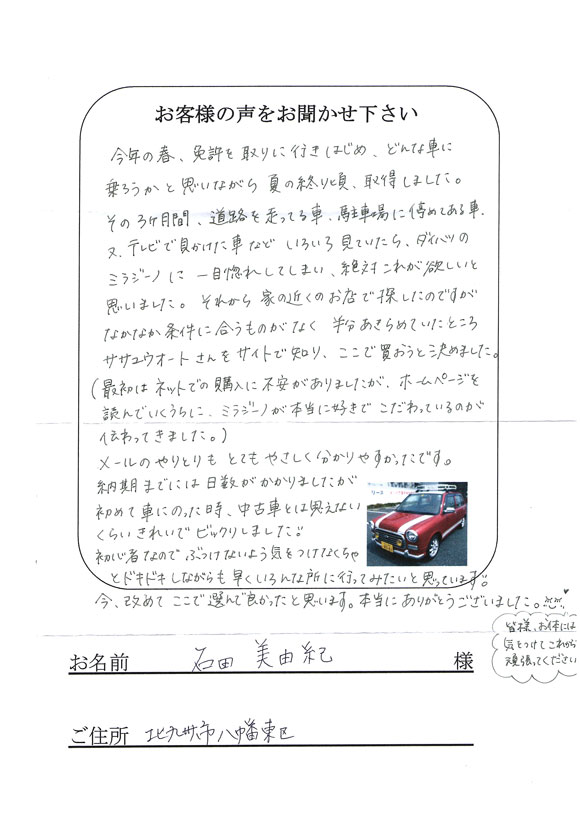 お客様の声をお聞かせ下さい
今年の春、免許を取りに行きはじめ、どんな車に
乗ろうかと思いながら夏の終り頃、取得しました。
その3ヶ月間、道路を走ってる車、駐車場に停めてある車、
又、テレビで見かけた車などいろいろ見ていたら、ダイハツの
ミラジーノに一目惚れしてしまい、絶対これが欲しいと
思いました。それから家の近くのお店で探したのですが
なかなか条件に合うものがなく半分あきらめていたところ
ササユウオートさんをサイトで知り、ここで買おうと決めました。
(最初はネットでの購入に不安がありましたが、ホームページを
読んでいくうちに、ミラジーノが本当に好きでこだわっているのが
伝わってきました。)
メールのやりとりもとてもやさしく分かりやすかったです。
納期までには日数がかかりましたが
初めて車にのった時、中古車とは思えない
くらいきれいでビックリしました!!
初心者なのでぶつけないよう気をつけなくちゃ
とドキドキしながらも早くいろんな所に行ってみたいと思っています!!
今、改めてここで選んで良かったと思います。本当にありがとうございました。
皆様、お体には
気をつけてこれから
頑張ってください
お名前 石田 美由紀 様
ご住所 北九州市八幡東区